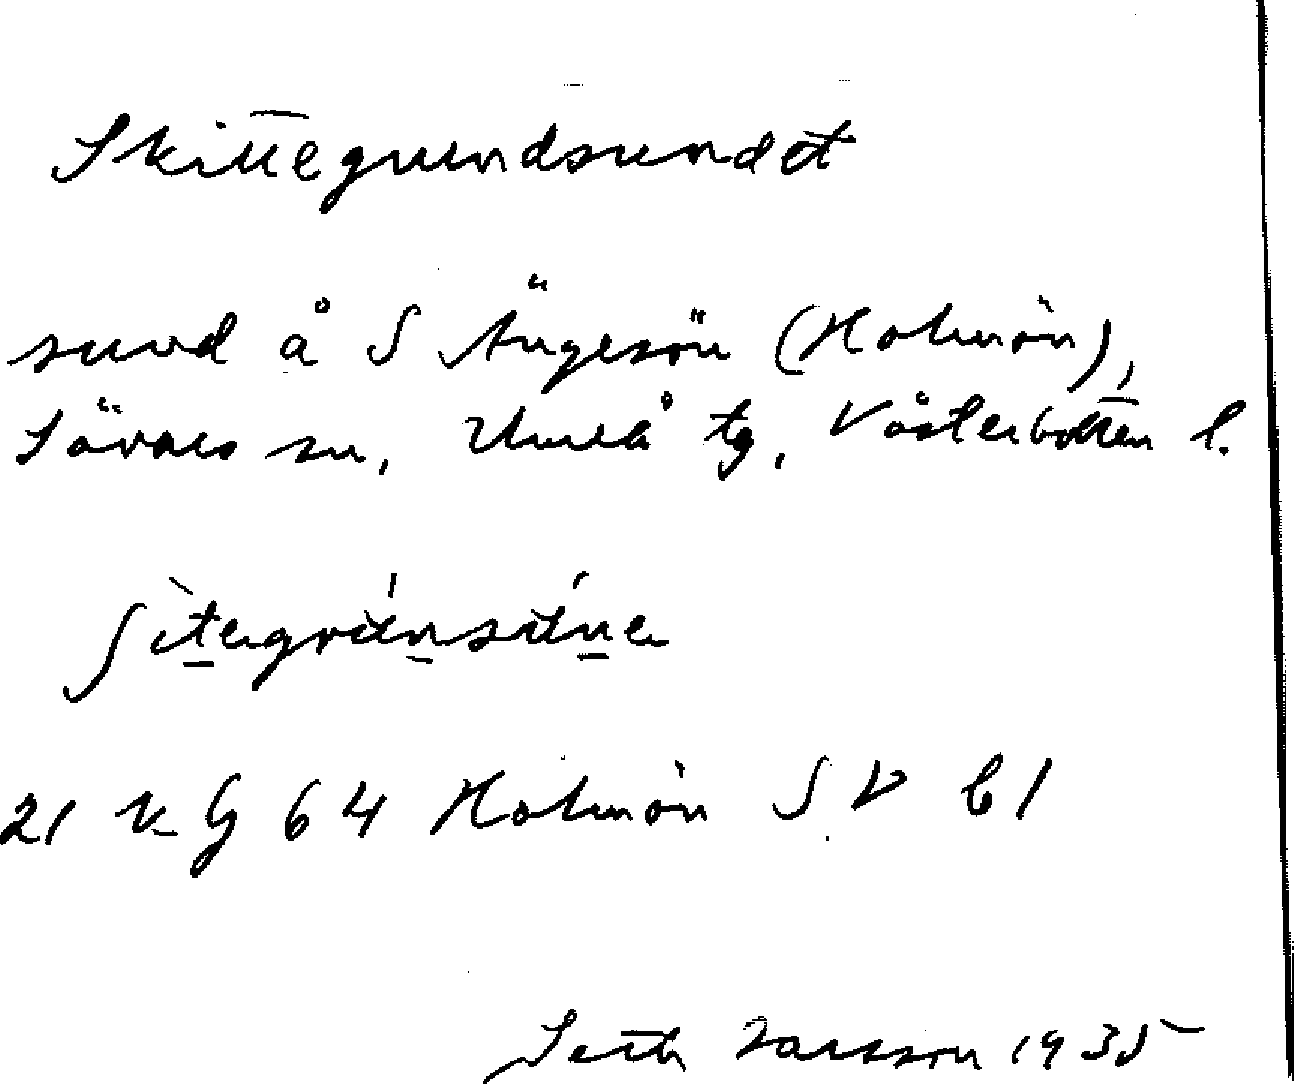 Skittegrundsundet
sund å S Ängesön (Holmön),
Sävars sn, Umeå tg, Västerbottens l.
21 K G 64 Holmön SV b1
Seth Larsson 1935